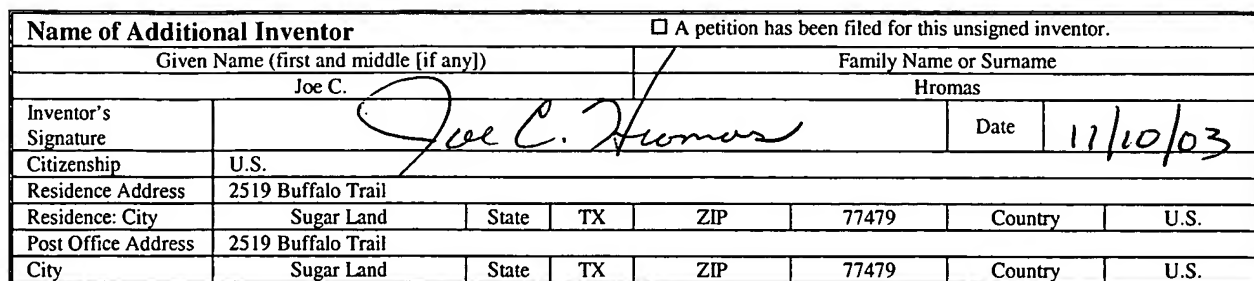 Name of Additional Inventor ☐ A petition has been filed for this unsigned inventor.
Given Name (first and middle [if any]) Family Name or Surname
Joe C. Hromas
Inventor's
Signature Joe C. Hromas Date 11/10/03
Citizenship U.S.
Residence Address 2519 Buffalo Trail
Residence: City Sugar Land State TX ZIP 77479 Country U.S.
Post Office Address 2519 Buffalo Trail
City Sugar Land State TX ZIP 77479 Country U.S.